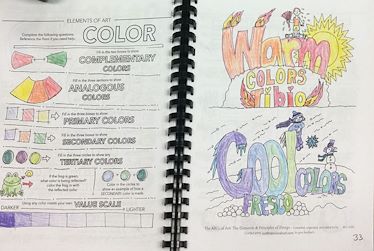 ELEMENTS OF ART
Complete the following questions.
Reference the front if you need help.
COLOR
Fill in the two boxes to show
COMPLEMENTARY
COLORS
Fill in the three sections to show
ANALOGOUS
COLORS
Fill in the three boxes to show
PRIMARY COLORS
Fill in the three boxes to show
SECONDARY COLORS
Fill in the three circles to show any
TERTIARY COLORS
If the frog is green,
what color is being reflected?
color the frog in with
the reflected color
Color in the circles to
show an example of how a
SECONDARY color is made
Using any color create your own
VALUE SCALE
DARKER
LIGHTER
Warm
COLORS
Tibio
Cool
COLORS
FRESCO
The ABCs of Art: The Elements & Principles of Design
33